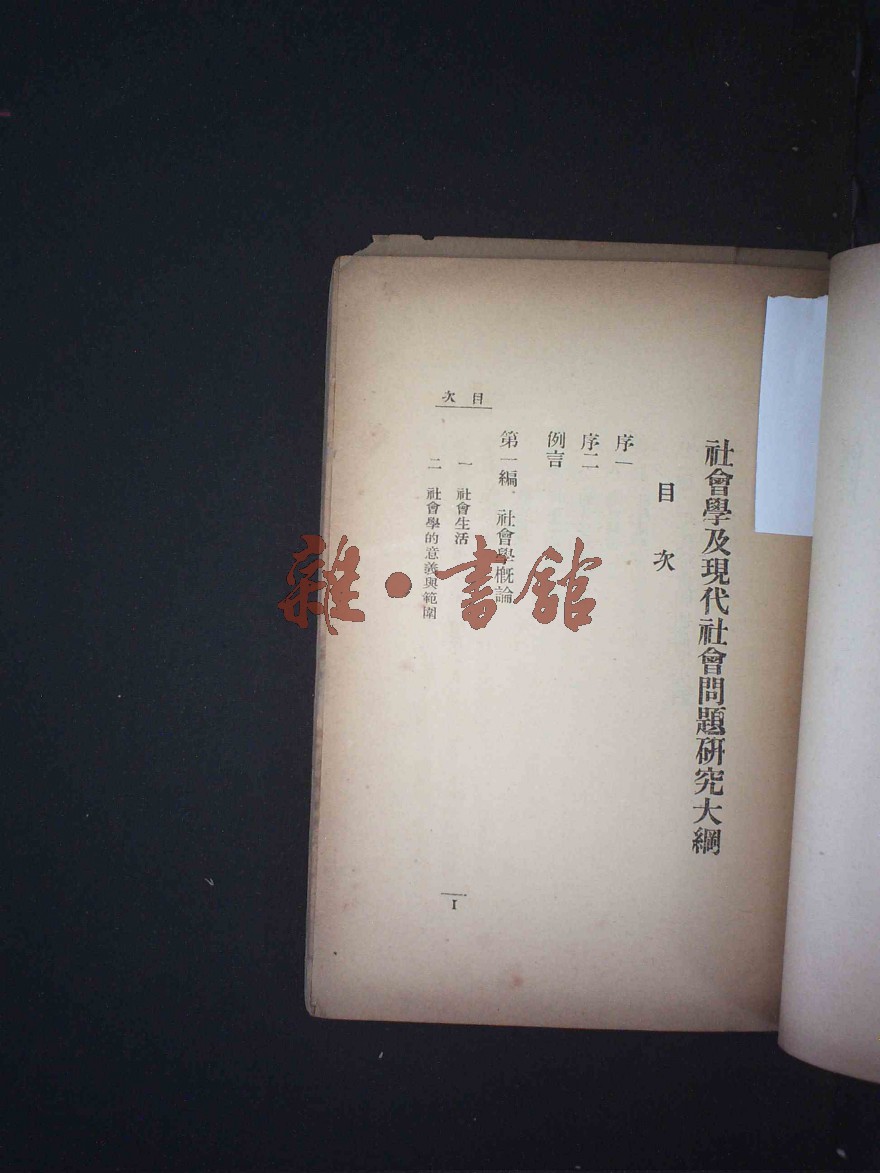 社會學及現代社會問題研究大綱
目次
序一
序二
例言
第一編．社會學概論
一 社會生活
二 社會學的意義與範圍
目次
I
雜·書館